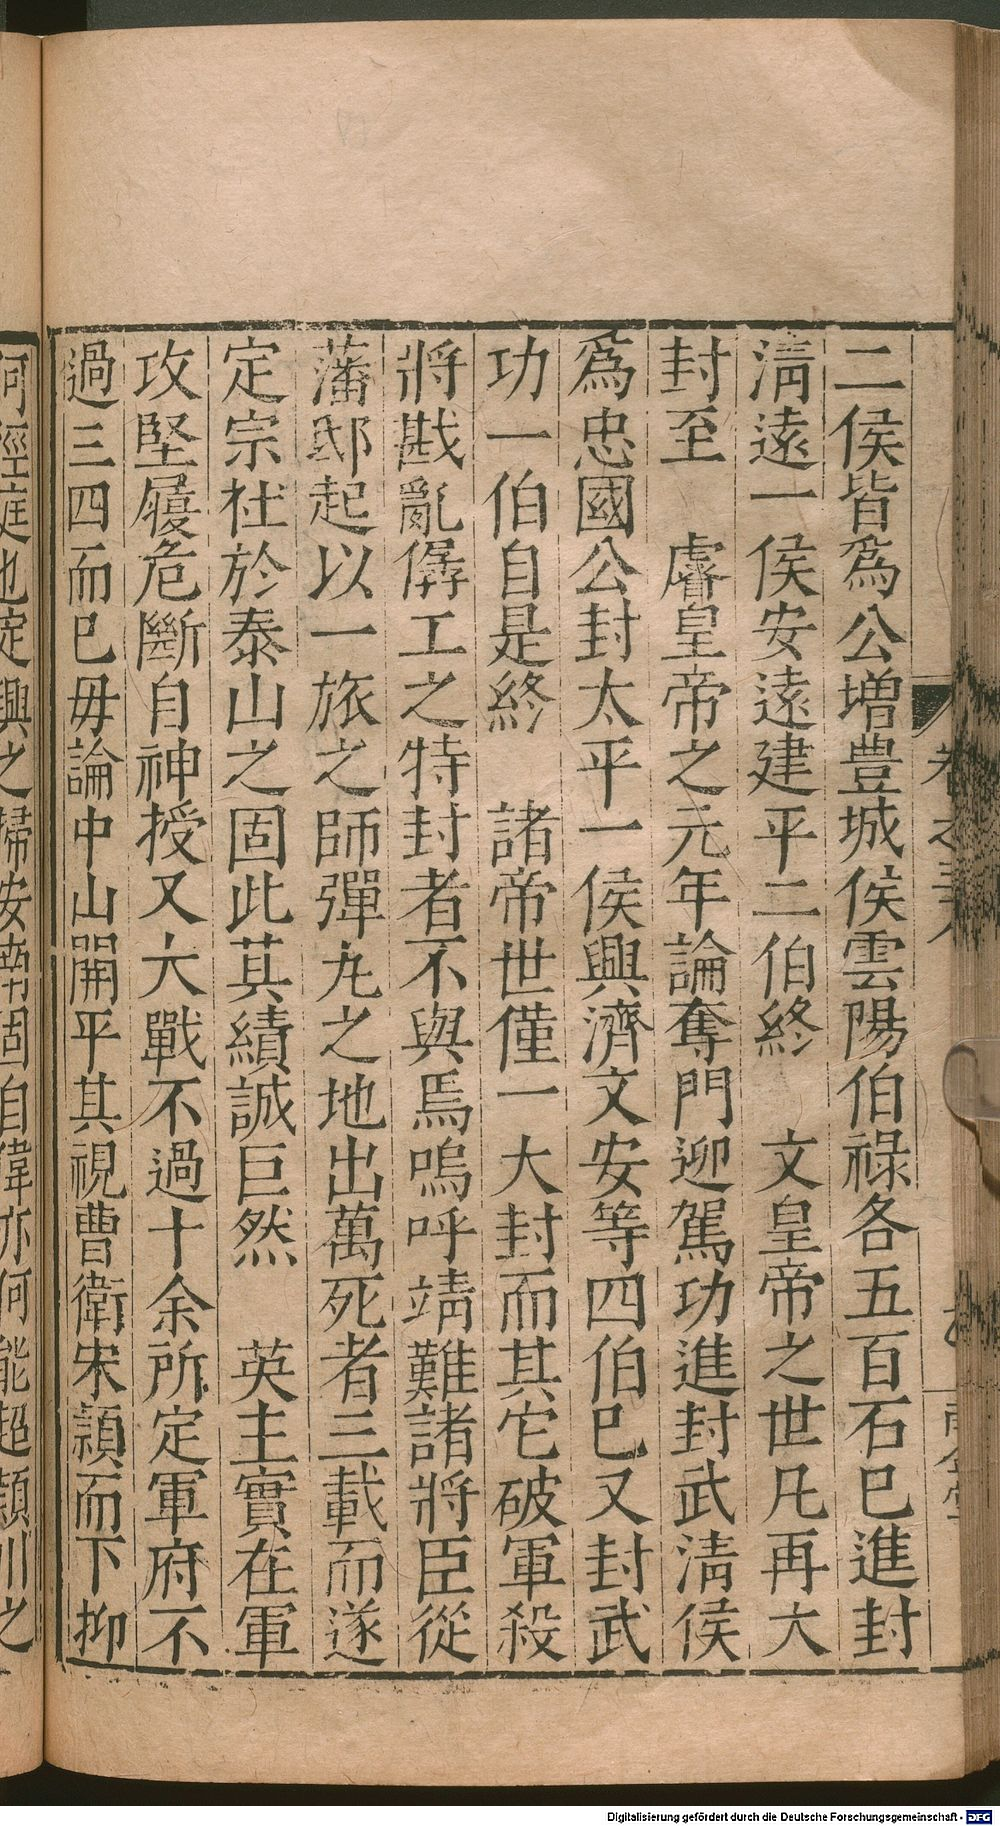 二侯皆爲公增豊城侯雲陽伯祿各五百石巳進封
淸遠一侯安遠建平二伯終　文皇帝之世凡再大
封至　睿皇帝之元年論奪門迎駕功進封武淸侯
爲忠國公封太平一侯興濟文安等四伯巳又封武
功一伯自是終　諸帝世僅一大封而其它破軍殺
將戡亂僝工之特封者不與焉嗚呼靖難諸將臣從
藩邸起以一旅之師彈丸之地出萬死者三載而遂
定宗社於泰山之固此其績誠巨然　英主實在軍
攻堅履危斷自神授又大戰不過十余所定軍府不
過三四而巳毋論中山開平其視曹衛宋潁而下抑
何徑庭也定興之掃安南固自偉亦何能超潁川之
Digitalisierung gefördert durch die Deutsche Forschungsgemeinschaft - DFG